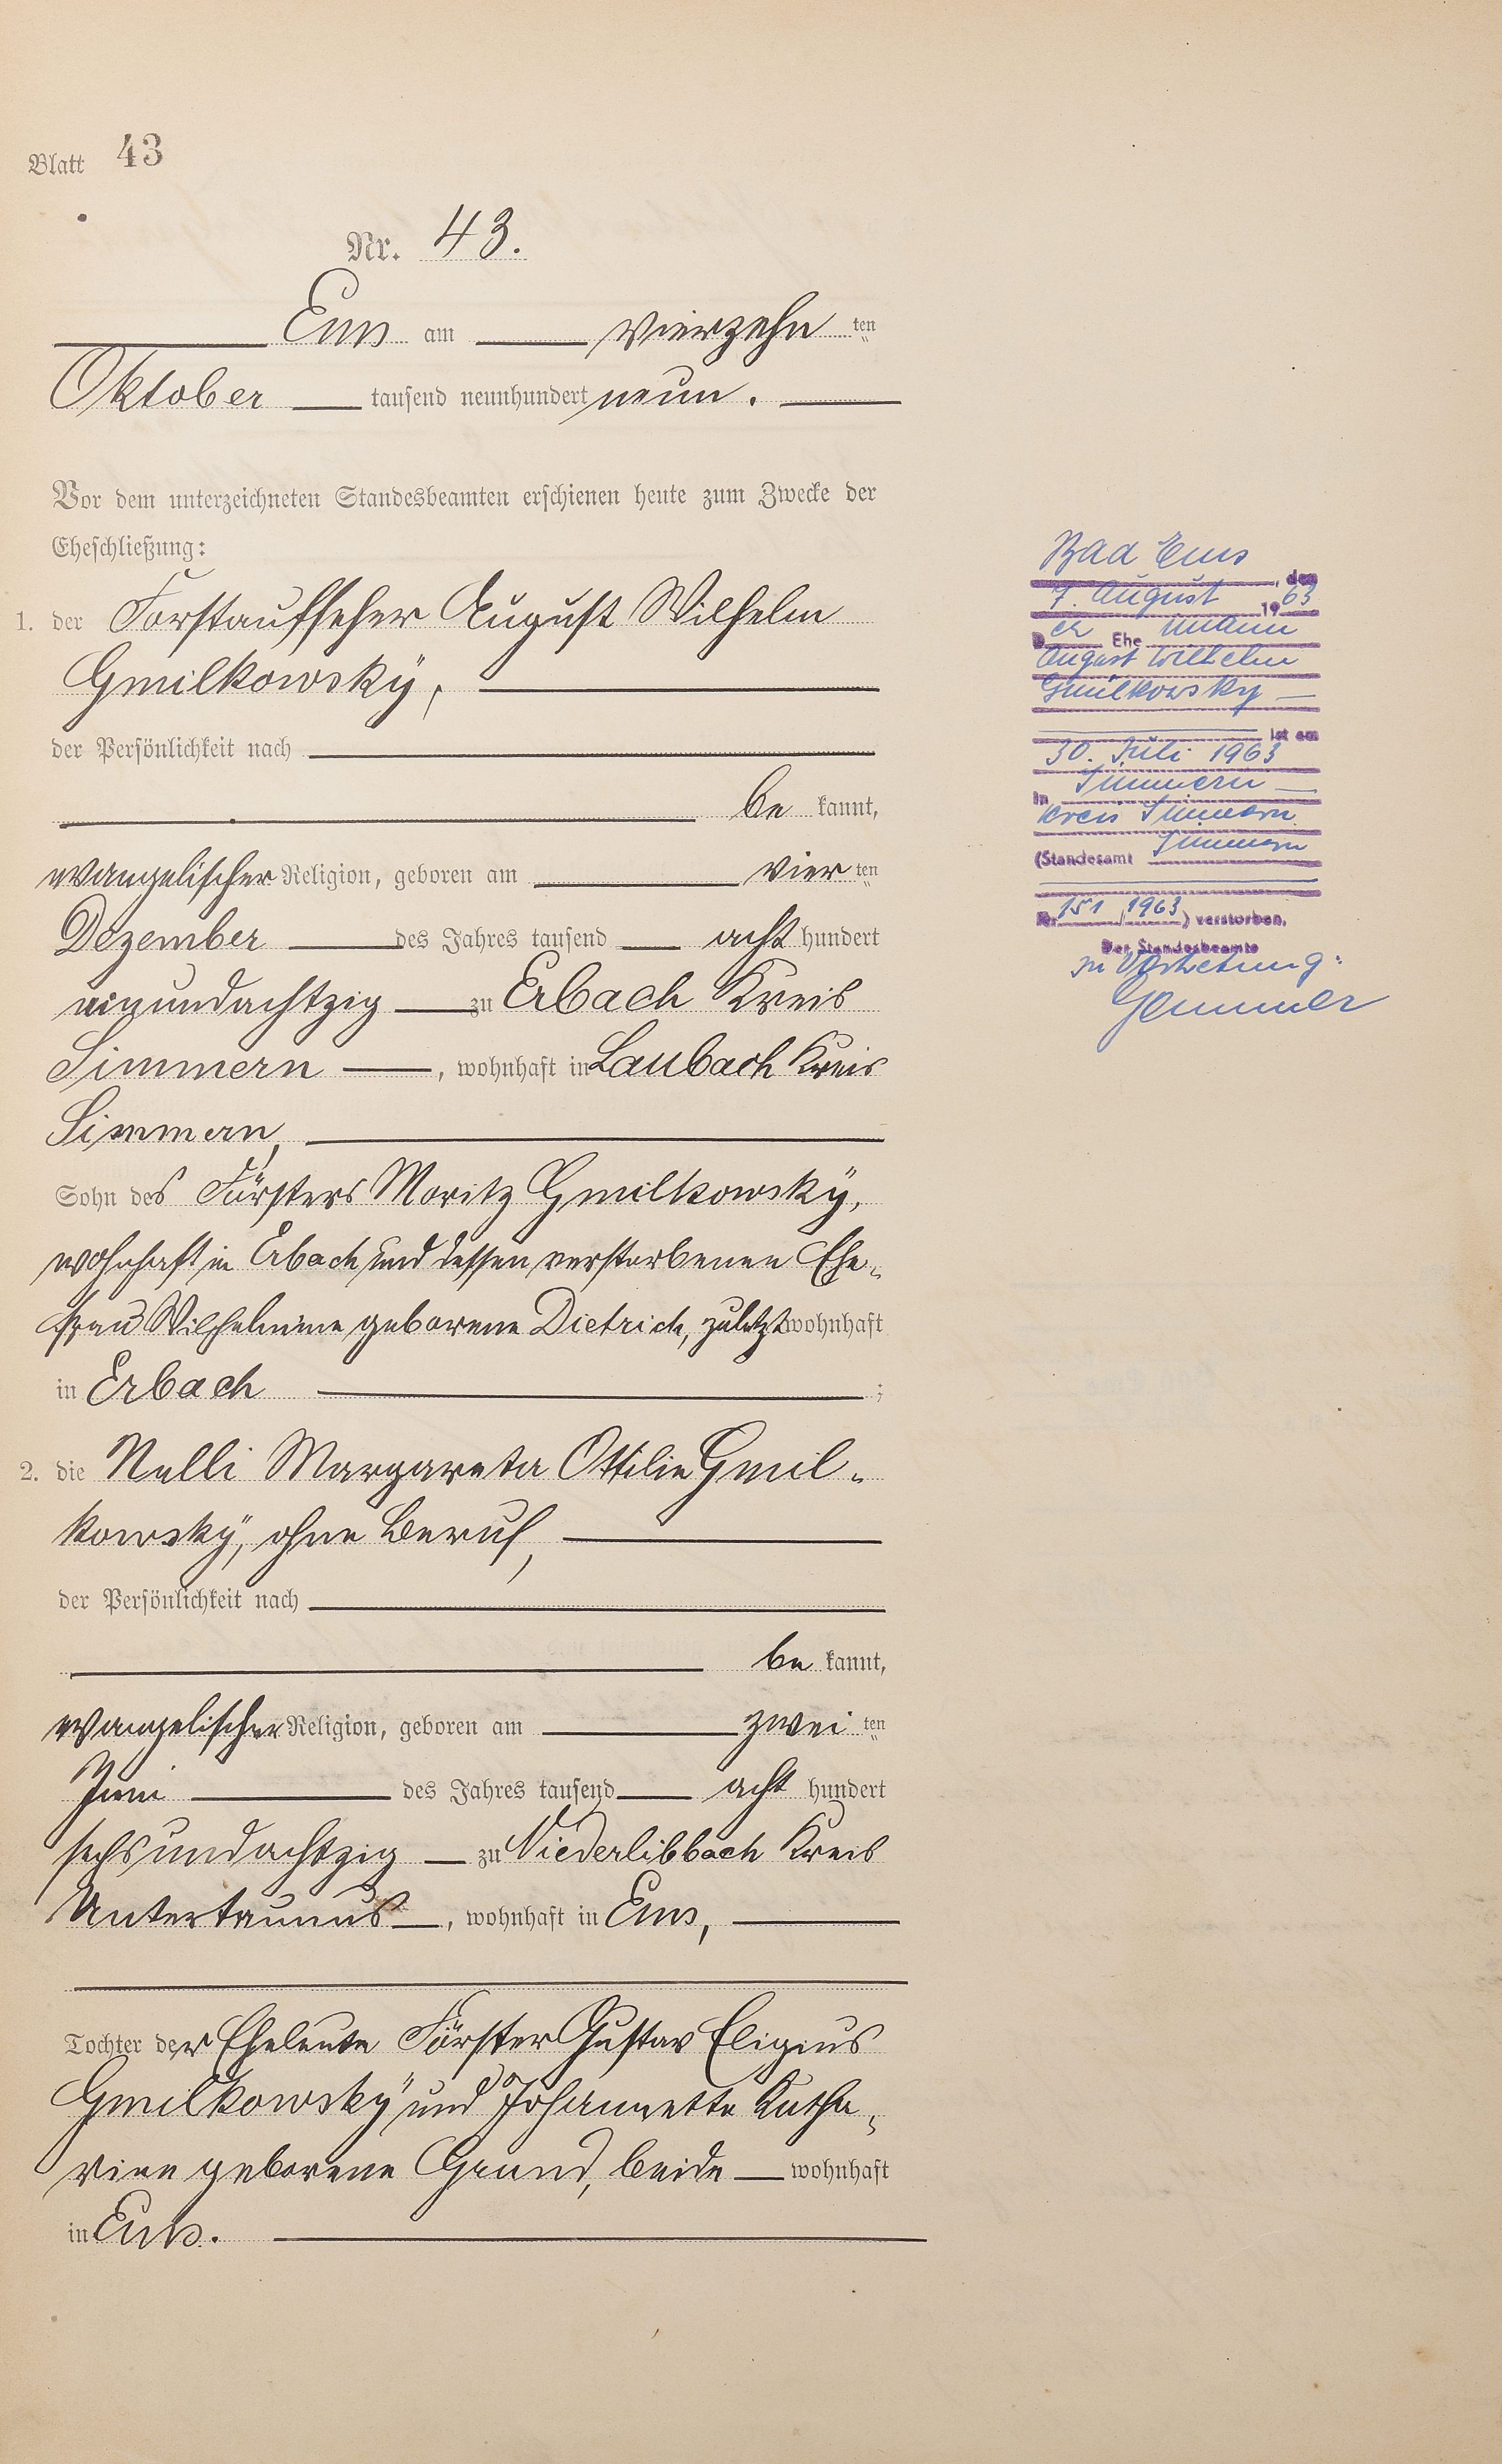 Blatt 43
Nr. 43.
Ems am vierzehn ten
Oktober tausend neunhundert neun.
Vor dem unterzeichneten Standesbeamten erschienen heute zum Zwecke der
Eheschließung:
1. der Forstaufseher August Wilhelm
Gmilkowskÿ,
der Persönlichkeit nach
be kannt,
evangelischer Religion, geboren am vier ten
Dezember des Jahres tausend acht hundert
einundachtzig zu Erbach Kreis
Simmern, wohnhaft in Laubach Kreis
Simmern,
Sohn des Försters Moritz Gmilkowskÿ,
wohnhaft in Erbach und dessen verstorbenen Ehe-
frau Wilhelmine geborene Dietrich, zuletzt wohnhaft
in Erbach ;
2. die Nelli Margareta Ottilie Gmil-
kowskÿ, ohne Beruf,
der Persönlichkeit nach
be kannt,
evangelischer Religion, geboren am zwei ten
Juni des Jahres tausend acht hundert
sechsundachtzig zu Niederlibbach Kreis
Untertaunus, wohnhaft in Ems,
Tochter der Eheleute Förster Gustav Eligius
Gmilkowskÿ und Johannette Katha-
rine geborene Grund, beide wohnhaft
in Ems.
Bad Ems, den
7. August 1963
Der Ehe mann
August Wilhelm
Gmilkowsky
ist am
30. Juli 1963
in Simmern
Kreis Simmern
(Standesamt Simmern
Nr. 151/1963) verstorben.
Der Standesbeamte
In Vertretung: